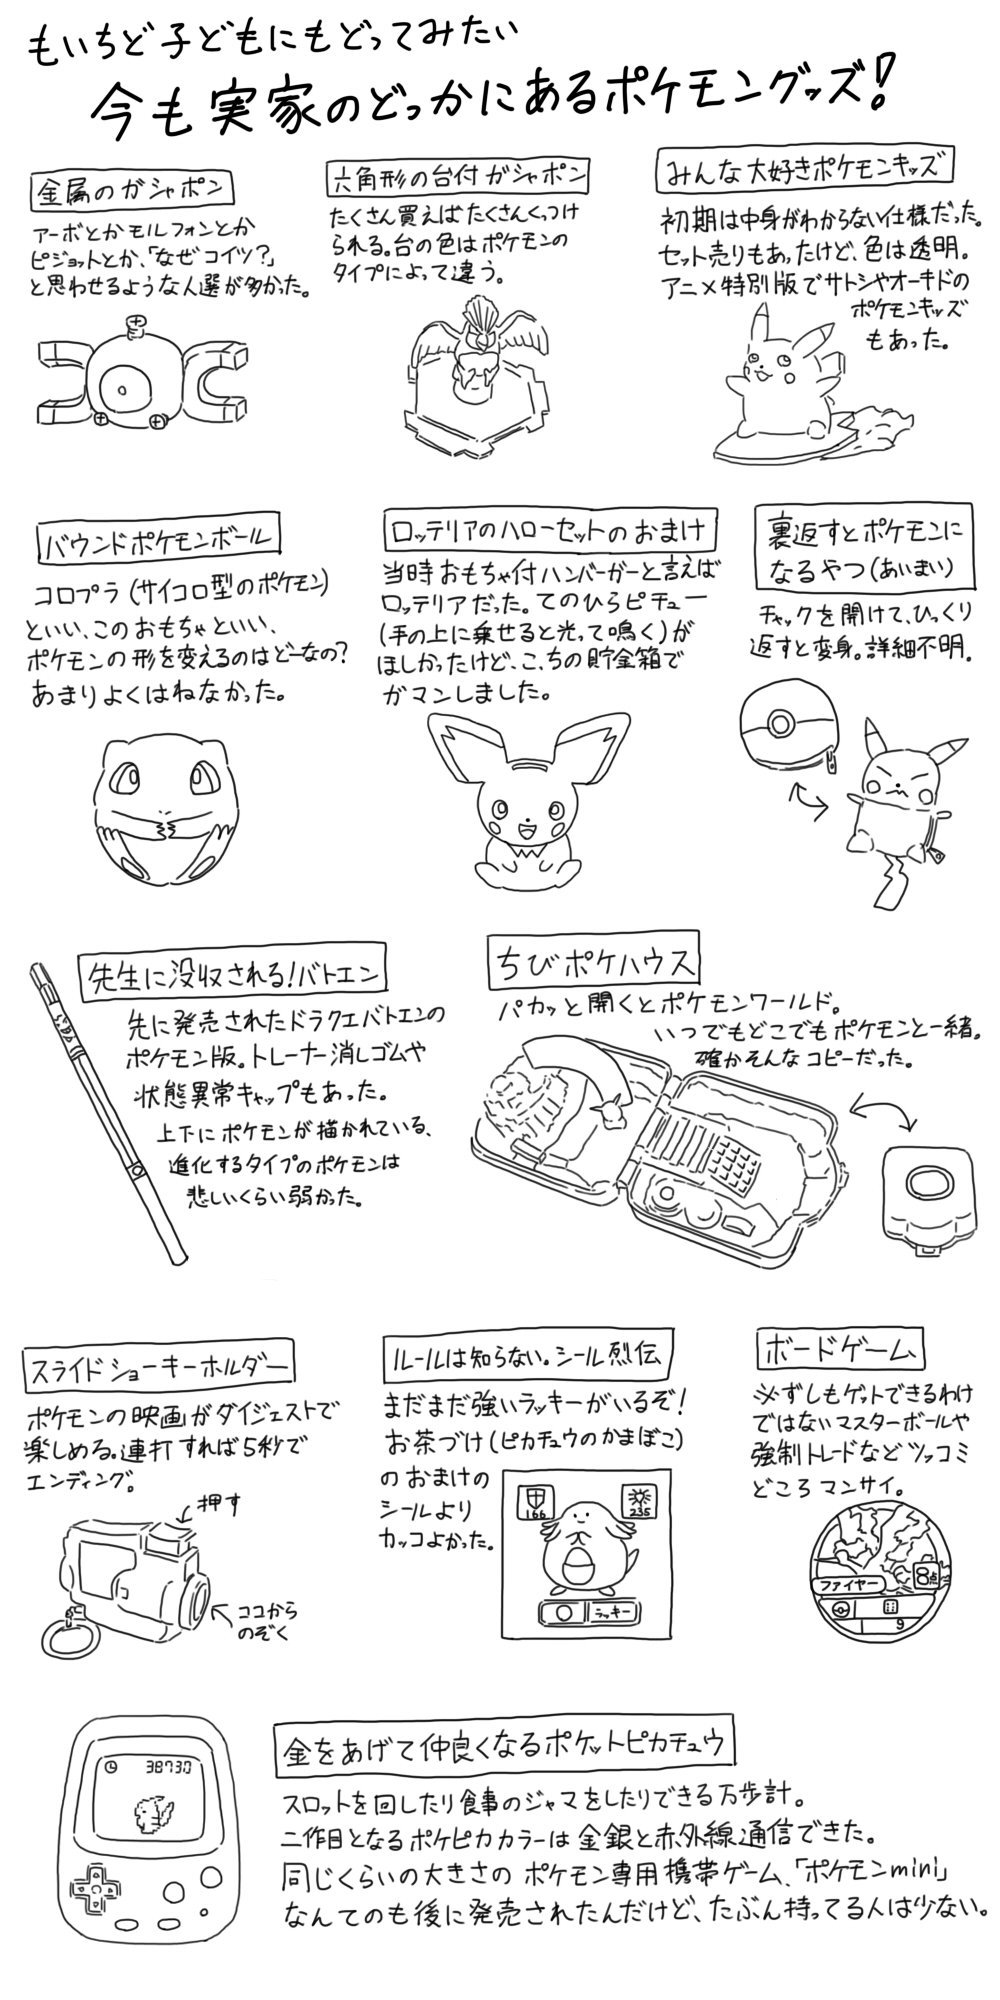 もいちど子どもにもどってみたい
今も実家のどっかにあるポケモングッズ!
金属のガシャポン
アーボとかモルフォンとか
ピジョットとか、「なぜコイツ?」
と思わせるような人選が多かった。
六角形の台付ガシャポン
たくさん買えばたくさんくっつけ
られる。台の色はポケモンの
タイプによって違う。
みんな大好きポケモンキッズ
初期は中身がわからない仕様だった。
セット売りもあったけど、色は透明。
アニメ特別版でサトシやオーキドの
ポケモンキッズ
もあった。
バウンドポケモンボール
コロプラ(サイコロ型のポケモン)
といい、このおもちゃといい、
ポケモンの形を変えるのはどーなの?
あまりよくはねなかった。
ロッテリアのハローセットのおまけ
当時おもちゃ付ハンバーガーと言えば
ロッテリアだった。てのひらピチュー
(手の上に乗せると光って鳴く)が
ほしかったけど、こっちの貯金箱で
ガマンしました。
裏返すとポケモンに
なるやつ(あいまい)
チャックを開けて、ひっくり
返すと変身。詳細不明。
先生に没収される!バトエン
先に発売されたドラクエバトエンの
ポケモン版。トレーナー消しゴムや
状態異常キャップもあった。
上下にポケモンが描かれている、
進化するタイプのポケモンは
悲しいくらい弱かった。
ちびポケハウス
パカッと開くとポケモンワールド。
いつでもどこでもポケモンと一緒。
確かそんなコピーだった。
スライドショーキーホルダー
ポケモンの映画がダイジェストで
楽しめる。連打すれば5秒で
エンディング。
押す
ココから
のぞく
ルールは知らない。シール烈伝
まだまだ強いラッキーがいるぞ!
お茶づけ(ピカチュウのかまぼこ)
のおまけの
シールより
カッコよかった。
166
235
ラッキー
ボードゲーム
※ずしもゲットできるわけ
ではないマスターボールや
強制トレードなどツッコミ
どころマンサイ。
ファイヤー
8点
9
38730
金をあげて仲良くなるポケットピカチュウ
スロットを回したり食事のジャマをしたりできる万歩計。
二作目となるポケピカカラーは金銀と赤外線通信できた。
同じくらいの大きさのポケモン専用携帯ゲーム、「ポケモンmini」
なんてのも後に発売されたんだけど、たぶん持ってる人は少ない。